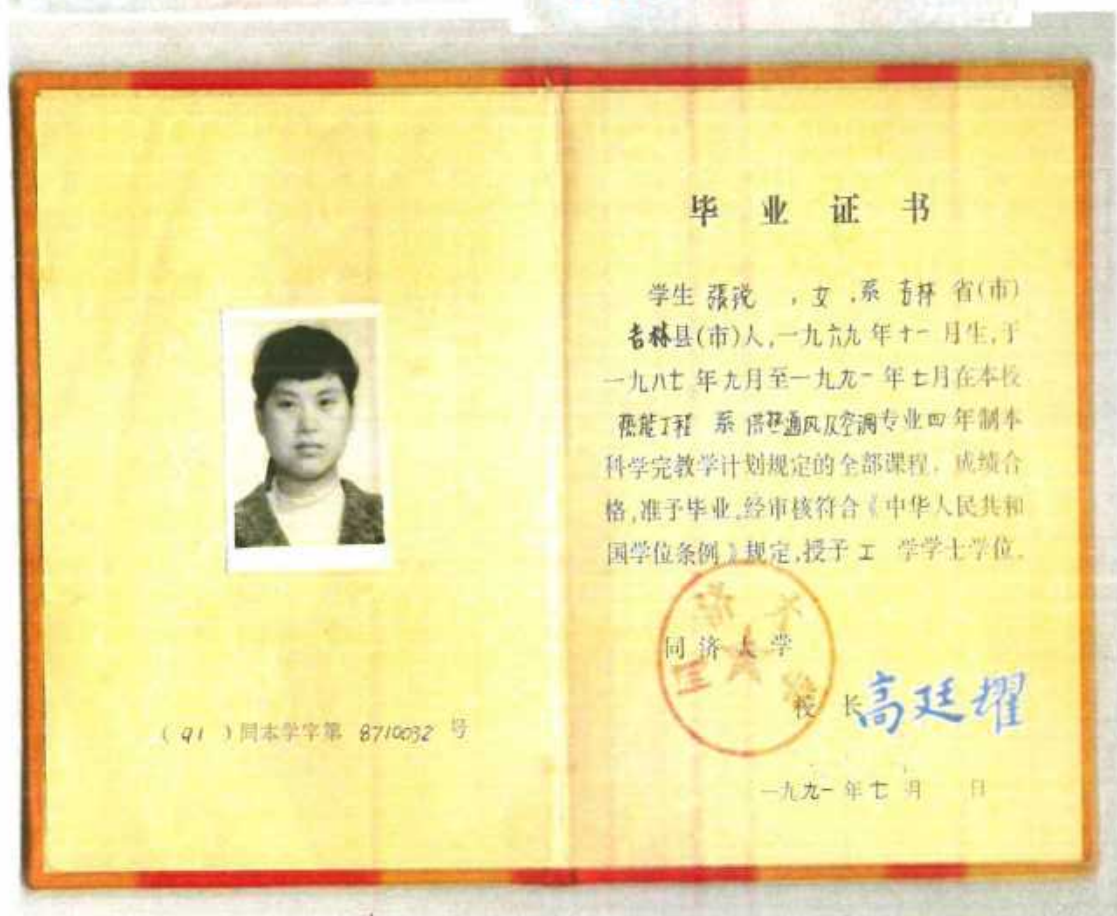 毕业证书
学生 張锐 ,女,系 吉林 省(市)
吉林县(市)人,一九六九年十一月生,于
一九八七年九月至一九九一年七月在本校
热能工程 系 供热通风及空调专业四年制本
科学完教学计划规定的全部课程,成绩合
格,准予毕业,经审核符合《中华人民共和
国学位条例》规定,授予 工 学学士学位。
同济大学
校 长 高廷耀
一九九一年七月 日
(91)同本学字第 8710032 号